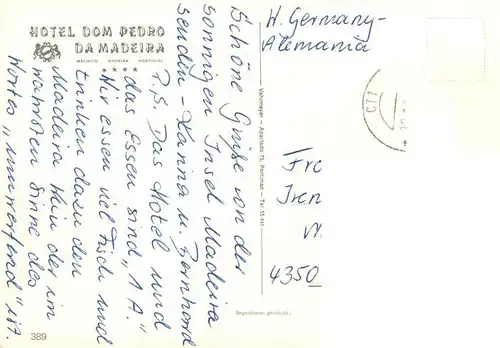 HOTEL DOM PEDRO
DA MADEIRA
MACHICO, MADEIRA PORTUGAL
Schöne Grüße von der
sonnigen Insel Madeira
senden - Hanna u. Bernhard
P.S. Das Hotel und
das Essen sind „1A".
Wir essen viel Fisch und
trinken dazu den
Madeira Wein der im
wahrsten Sinne des
Wortes „umwerfend" ist.
389
Vahrmeyer - Apartado 75, Portimão - Tel. 55 441
Reproduções proibida.
W. Germany-
Alemania
CTT
Fre
Iren
W
4350